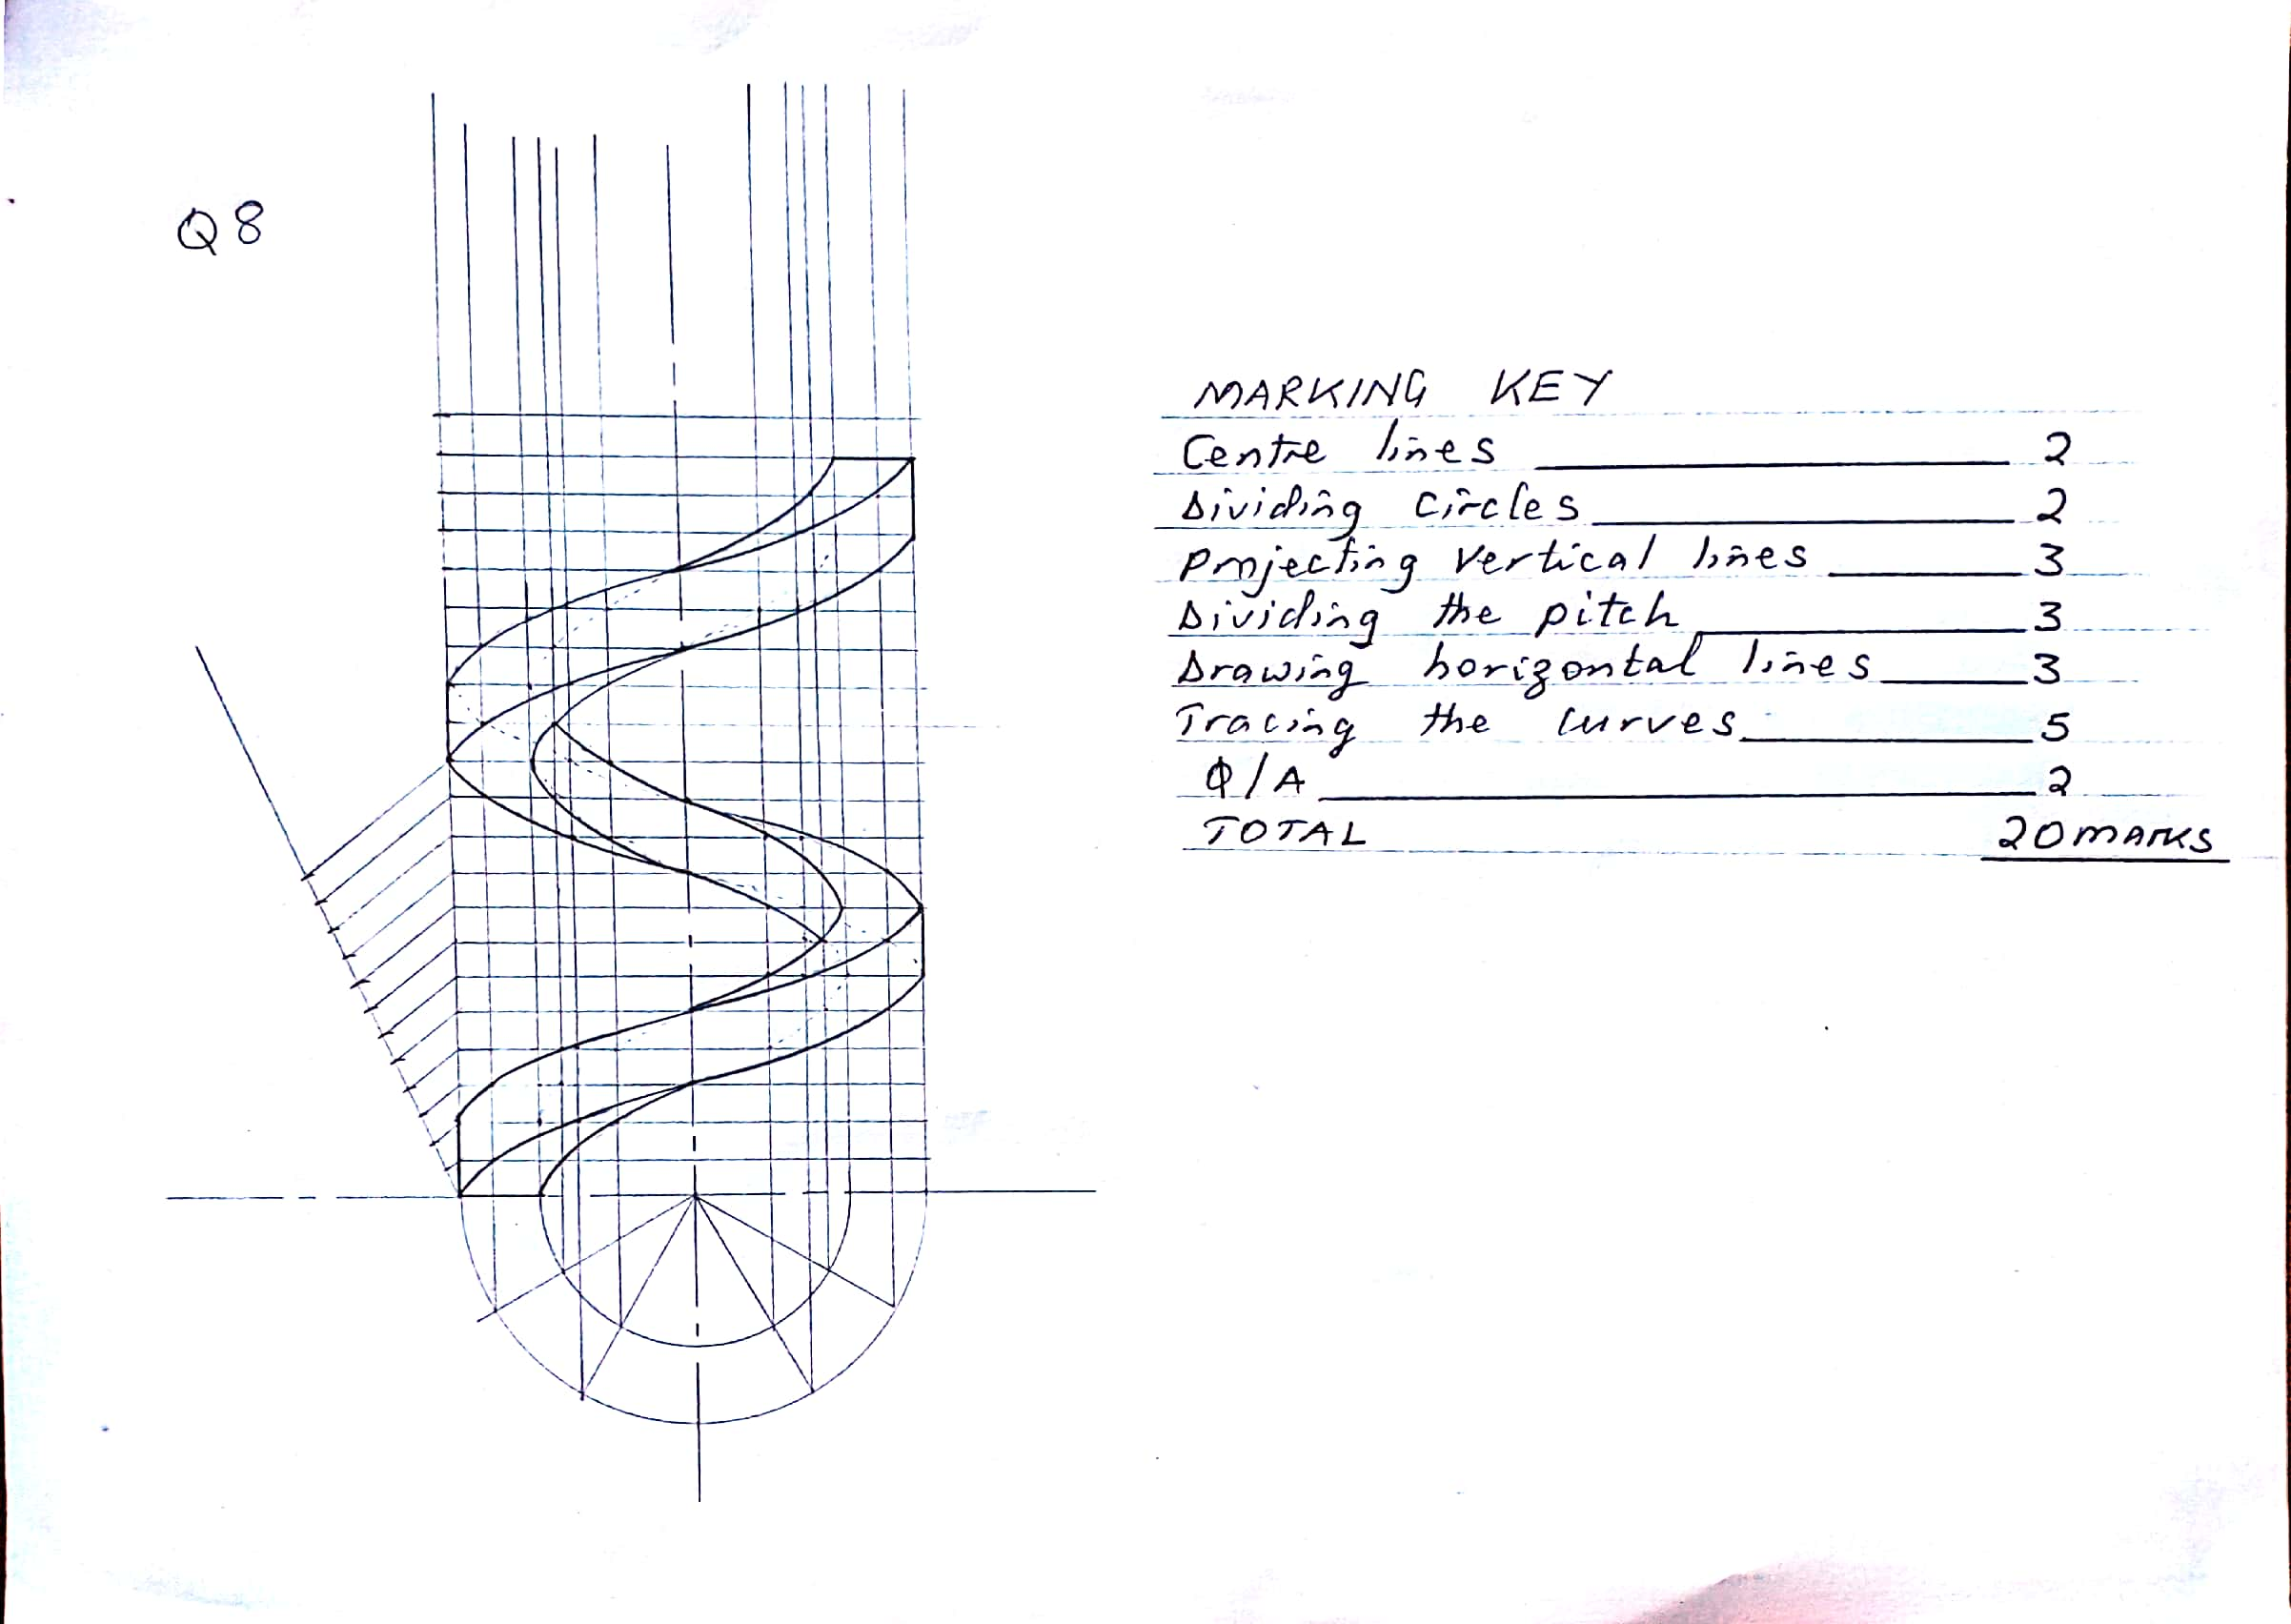 Q8
MARKING KEY
Centre lines 2
Dividing circles 2
Projecting vertical lines 3
Dividing the pitch 3
Drawing horizontal lines 3
Tracing the curves 5
Q/A 2
TOTAL 20 MARKS